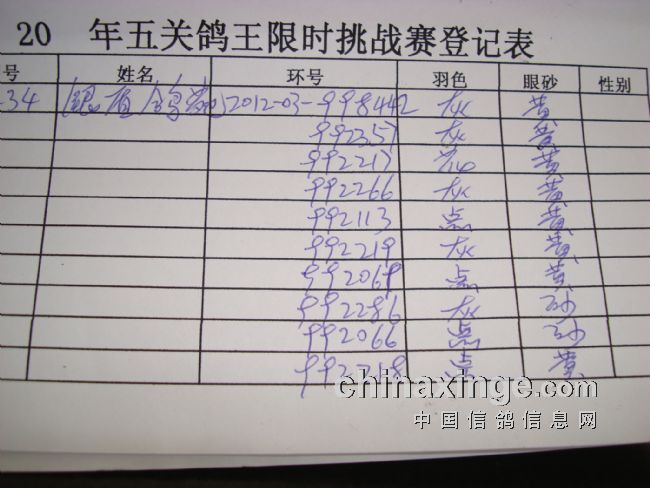 20 年五关鸽王限时挑战赛登记表
号 姓名 环号 羽色 眼砂 性别
-34 2012-03-998442 灰 黄
992357 灰 黄
992217 花 黄
992266 灰 黄
992113 点 黄
992219 灰 黄
992069 点 黄
992286 灰 砂
992066 点 砂
992218 点 黄
chinaxinge.com
中国信鸽信息网